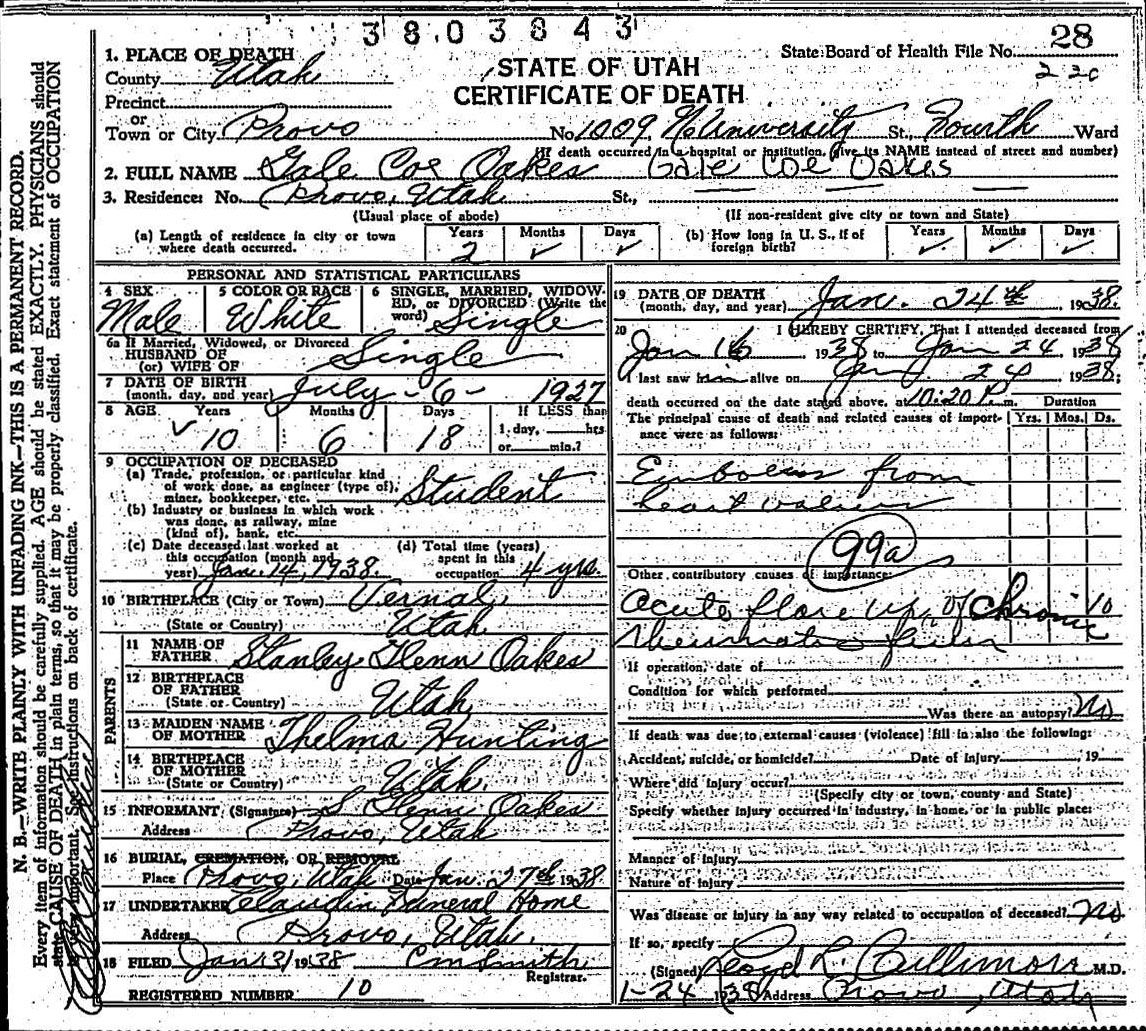 3803843
State Board of Health File No. 28
220
1. PLACE OF DEATH
County Utah
STATE OF UTAH
CERTIFICATE OF DEATH
Precinct
or
Town or City Provo No. 1009 N University St., Fourth Ward
(If death occurred in a hospital or institution, give its NAME instead of street and number)
2. FULL NAME Gale Coe Oakes Gale Coe Oakes
3. Residence: No. Provo, Utah St.,
(Usual place of abode) (If non-resident give city or town and State)
(a) Length of residence in city or town where death occurred. Years 2 Months ✓ Days ✓
(b) How long in U. S., if of foreign birth? Years ✓ Months ✓ Days ✓
PERSONAL AND STATISTICAL PARTICULARS
4 SEX Male
5 COLOR OR RACE White
6 SINGLE, MARRIED, WIDOWED, or DIVORCED (Write the word) Single
6a If Married, Widowed, or Divorced
HUSBAND OF
(or) WIFE OF Single
7 DATE OF BIRTH
(month, day, and year) July - 6 - 1927
8 AGE Years Months Days If LESS than
✓ 10 6 18 1 day, hrs
or min.?
9 OCCUPATION OF DECEASED
(a) Trade, profession, or particular kind
of work done, as engineer (type of),
miner, bookkeeper, etc. Student
(b) Industry or business in which work
was done, as railway, mine
(kind of), bank, etc.
(c) Date deceased last worked at
this occupation (month and
year) Jan. 14, 1938.
(d) Total time (years)
spent in this
occupation 4 yrs.
10 BIRTHPLACE (City or Town) Vernal
(State or Country) Utah
PARENTS
11 NAME OF
FATHER Stanley Glenn Oakes
12 BIRTHPLACE
OF FATHER
(State or Country) Utah
13 MAIDEN NAME
OF MOTHER Thelma Hunting
14 BIRTHPLACE
OF MOTHER
(State or Country) Utah.
15 INFORMANT (Signature) S Glenn Oakes
Address Provo, Utah
16 BURIAL, CREMATION, OR REMOVAL
Place Provo, Utah Date Jan. 27th 1938
17 UNDERTAKER Claudin Funeral Home
Address Provo, Utah.
18 FILED Jan 31 1938 C M Smith
Registrar.
REGISTERED NUMBER 10
19 DATE OF DEATH
(month, day, and year) Jan. 24th 1938.
20 I HEREBY CERTIFY, That I attended deceased from
Jan 16 1938 to Jan 24 1938
I last saw him alive on Jan 24 1938;
death occurred on the date stated above, at 10:20 P. m. Duration
The principal cause of death and related causes of importance were as follows: Yrs. Mos. Ds.
Embolism from
heart valves
99a
Other contributory causes of importance:
Acute flare up of chronic 10
Rheumatic fever
If operation, date of
Condition for which performed
Was there an autopsy? No
If death was due to external causes (violence) fill in also the following:
Accident, suicide, or homicide? Date of injury 19
Where did injury occur?
(Specify city or town, county and State)
Specify whether injury occurred in industry, in home, or in public place:
Manner of injury
Nature of injury
Was disease or injury in any way related to occupation of deceased? No
If so, specify
(Signed) Lloyd L. Cullimore M.D.
1-24 1938 Address Provo, Utah
N. B.—WRITE PLAINLY WITH UNFADING INK—THIS IS A PERMANENT RECORD.
Every item of information should be carefully supplied. AGE should be stated EXACTLY. PHYSICIANS should
state CAUSE OF DEATH in plain terms, so that it may be properly classified. Exact statement of OCCUPATION
is very important. See instructions on back of certificate.